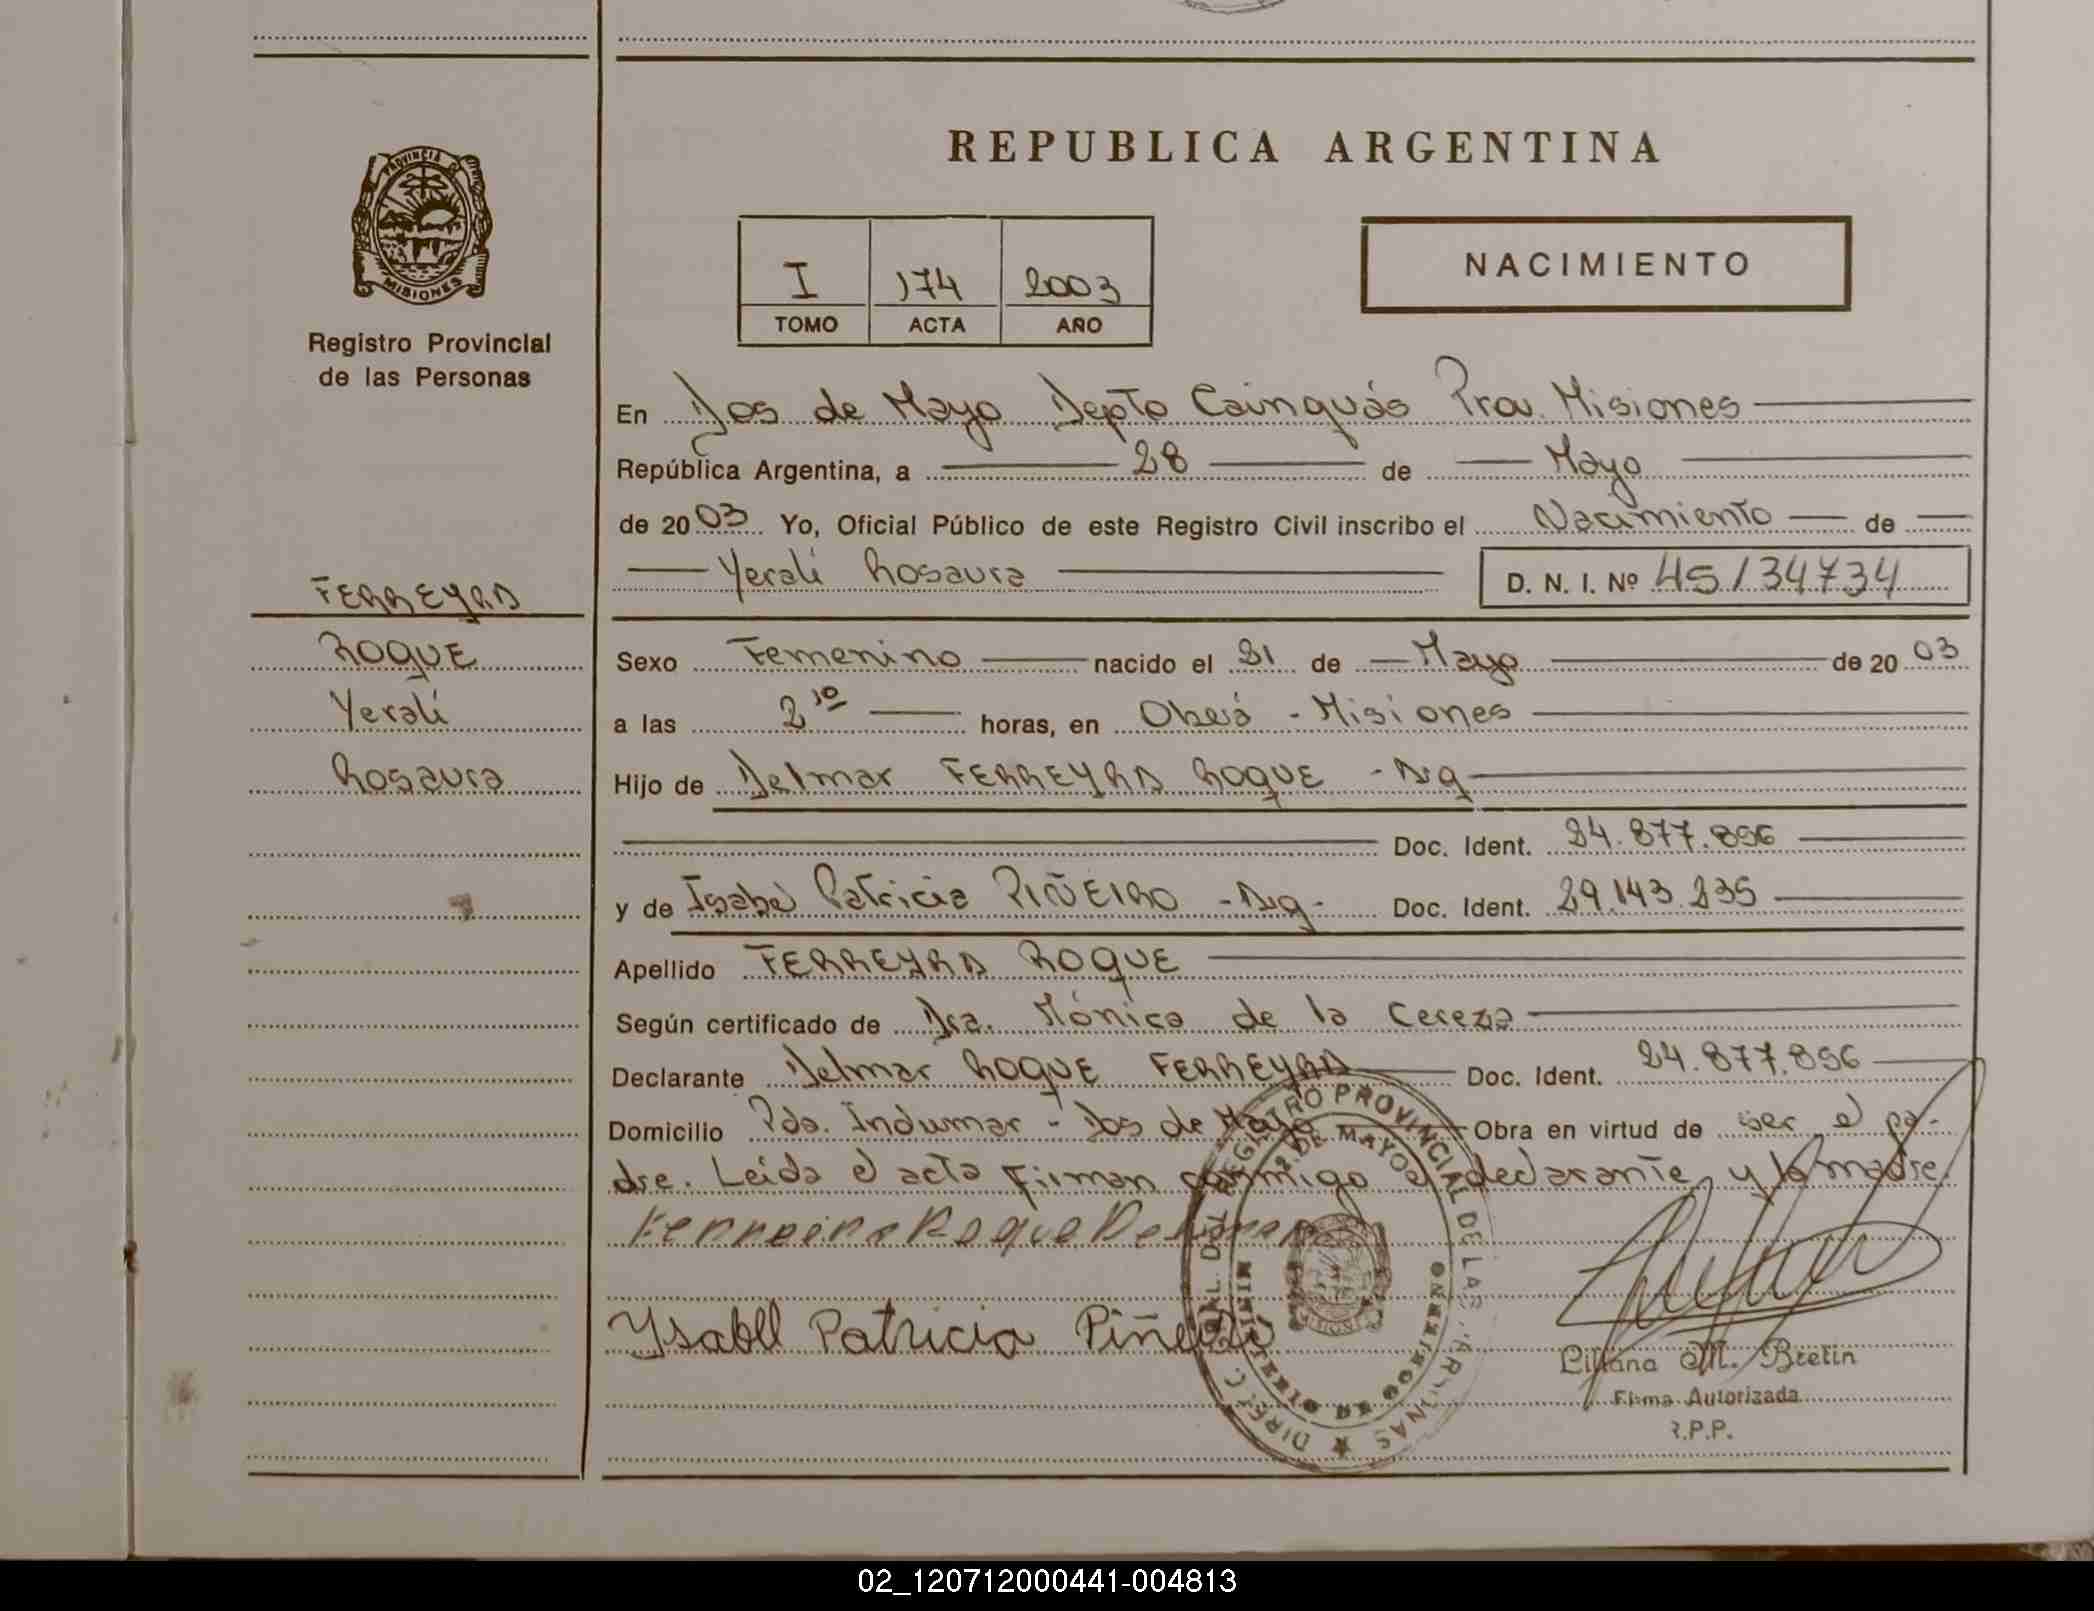 REPUBLICA ARGENTINA
PROVINCIA DE
MISIONES
Registro Provincial
de las Personas
I 174 2003
TOMO ACTA AÑO
NACIMIENTO
En Dos de Mayo Depto Cainguás Prov. Misiones
República Argentina, a 28 de Mayo
de 2003 Yo, Oficial Público de este Registro Civil inscribo el Nacimiento de
Yerali Rosaura D. N. I. Nº 45134734
FERREYRA
ROQUE
Yerali
Rosaura
Sexo Femenino nacido el 21 de Mayo de 2003
a las 2 10 horas, en Oberá - Misiones
Hijo de Delmar FERREYRA ROQUE - Arg
Doc. Ident. 24.877.856
y de Isabel Patricia PIÑEIRO - Arg - Doc. Ident. 29.143.235
Apellido FERREYRA ROQUE
Según certificado de Dra. Mónica de la Cereza
Declarante Delmar ROQUE FERREYRA Doc. Ident. 24.877.856
Domicilio Pdo. Indumar - Dos de Mayo Obra en virtud de ser el pa-
dre. Leida el acta firman conmigo el declarante y la madre.
Roque
Ysabel Patricia Piñeiro
DIREC. GRAL. DEL REGISTRO PROVINCIAL DE LAS PERSONAS
2 DE MAYO
Liliana M. Bretin
Firma Autorizada
R.P.P.
02_120712000441-004813